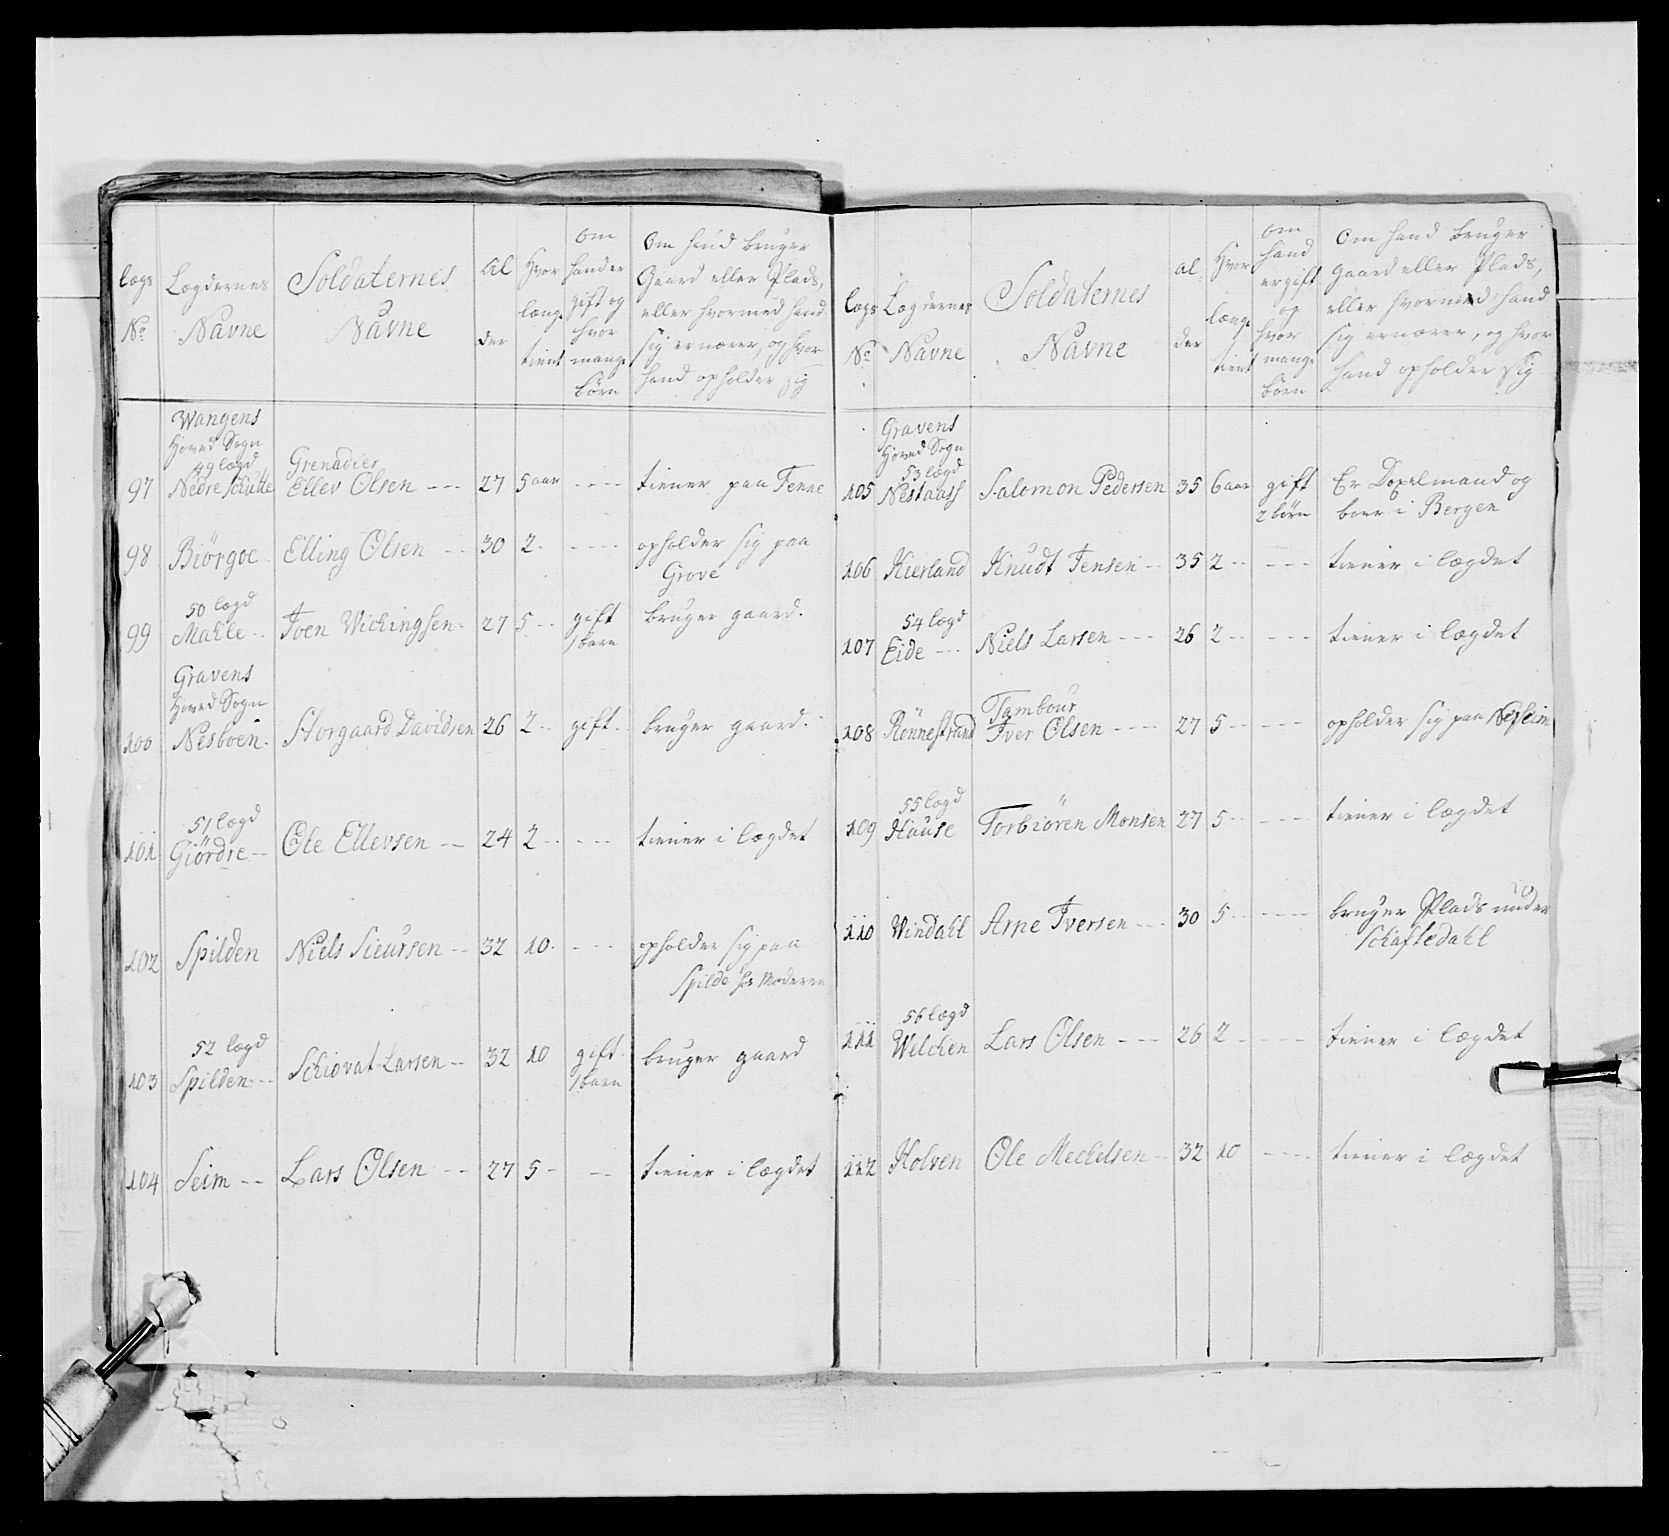 Lægs
No
Lægdernes
Navne
Soldaternes
Navne
Al
der
Hvor
længe
tient
Om
hand er
gift og
hvor
mange
börn
Om hand bruger
Gaard eller Plads,
eller hvormed hand
sig ernærer, og hvor
hand opholder sig
Wangens
Hoved Sogn
49 lægd
Grenadier
97 Nedre Schütle Ellev Olsen --- 27 5 aar ---- tiener paa Fenne
98 Biörgoe Elling Olsen -- 30 2. ---- opholder sig paa
Grove
50 lægd
99 Mahle -- Iven Wichingsen - 27 5 -- gift bruger gaard.
1 barn
Gravens
Hoved Sogn
100 Nesboen - Storgaard Davidsen 26 2 -- gift - bruger gaard.
51 lægd
101 Giördre -- Ole Ellevsen -- 24 2 -- --- tiener i lægdet
102 Spilden Niels Sieursen -- 32 10. --- opholder sig paa
Spilde hos Moderen
52 lægd
103 Spilden -- Schiovat Larsen -- 32 10 gift bruger gaard
1 barn
104 Seim -- Lars Olsen -- 27 5 - -- tiener i lægdet
Lægs
No
Lægdernes
Navne
Soldaternes
Navne
Al
der
Hvor
længe
tient
Om
hand
er gift
og
hvor
mange
börn
Om hand bruger
Gaard eller Plads,
eller hvormed hand
sig ernærer, og hvor
hand opholder sig
Gravens
Hoved Sogn
53 lægd
105 Nestaass Salomon Pedersen 35 6 aar gift Er Doxelmand og
2 börn boer i Bergen
106 Kierland Knudt Jensen -- 35 2 -- --- tiener i lægdet
54 lægd
107 Eide --- Niels Larsen --- 26 2 -- --- tiener i lægdet
Tambour
108 Rönnestrand Iver Olsen ---- 27 5 -- ---- opholder sig paa Neseim
55 lægd
109 Hause Torbiören Monsen 27 5 -- ---- tiener i lægdet
110 Windahl Arne Iversen --- 30 5 -- ---- bruger Plads under
Schaftedahl
56 lægd
111 Wilchen Lars Olsen --- 26 2 - ---- tiener i lægdet
112 Holven Ole Mechelsen -- 32 10 ---- tiener i lægdet